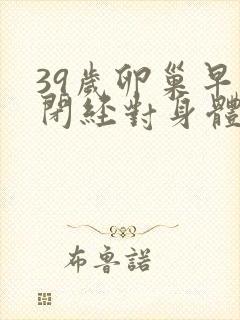 39歲卵巢早
閉經對身體
布魯諾